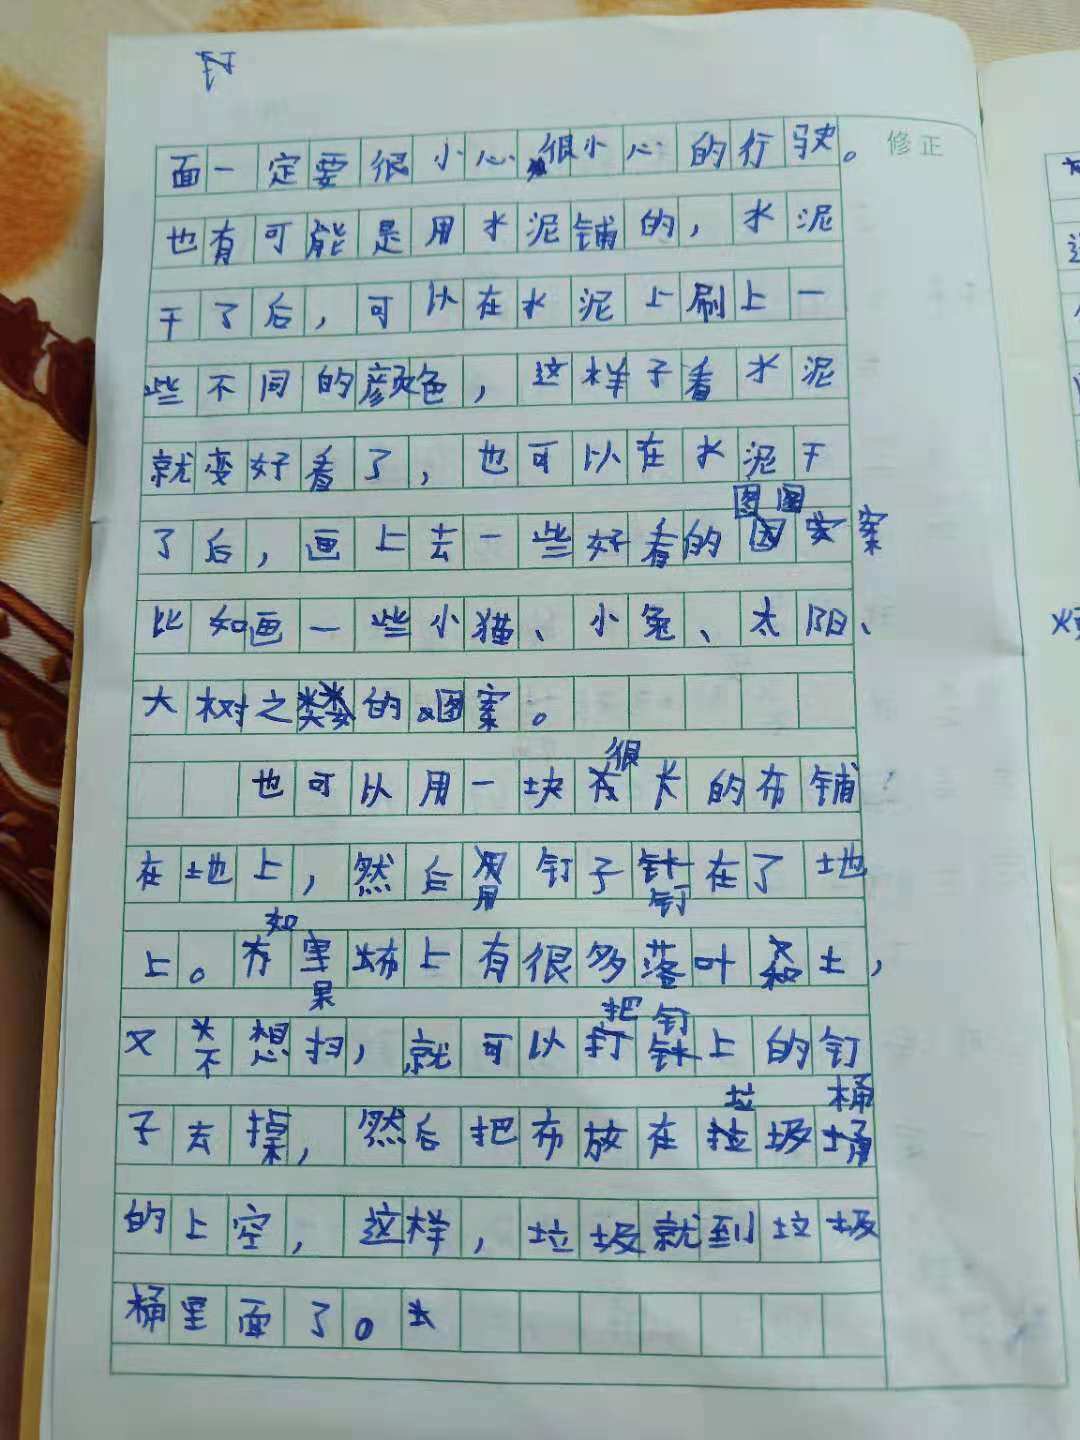 面一定要很小心很小心的行驶。
修正
也有可能是用水泥铺的，水泥
干了后，可以在水泥上刷上一
些不同的颜色，这样子看水泥
就变好看了，也可以在水泥干
了后，画上去一些好看的图案
比如画一些小猫、小兔、太阳、
大树之类的图案。
也可以用一块很大的布铺
在地上，然后用钉子钉在了地
上。如果布上有很多落叶和土，
又不想扫，就可以把钉上的钉
子去掉，然后把布放在垃圾桶
的上空，这样，垃圾就到垃圾
桶里面了。